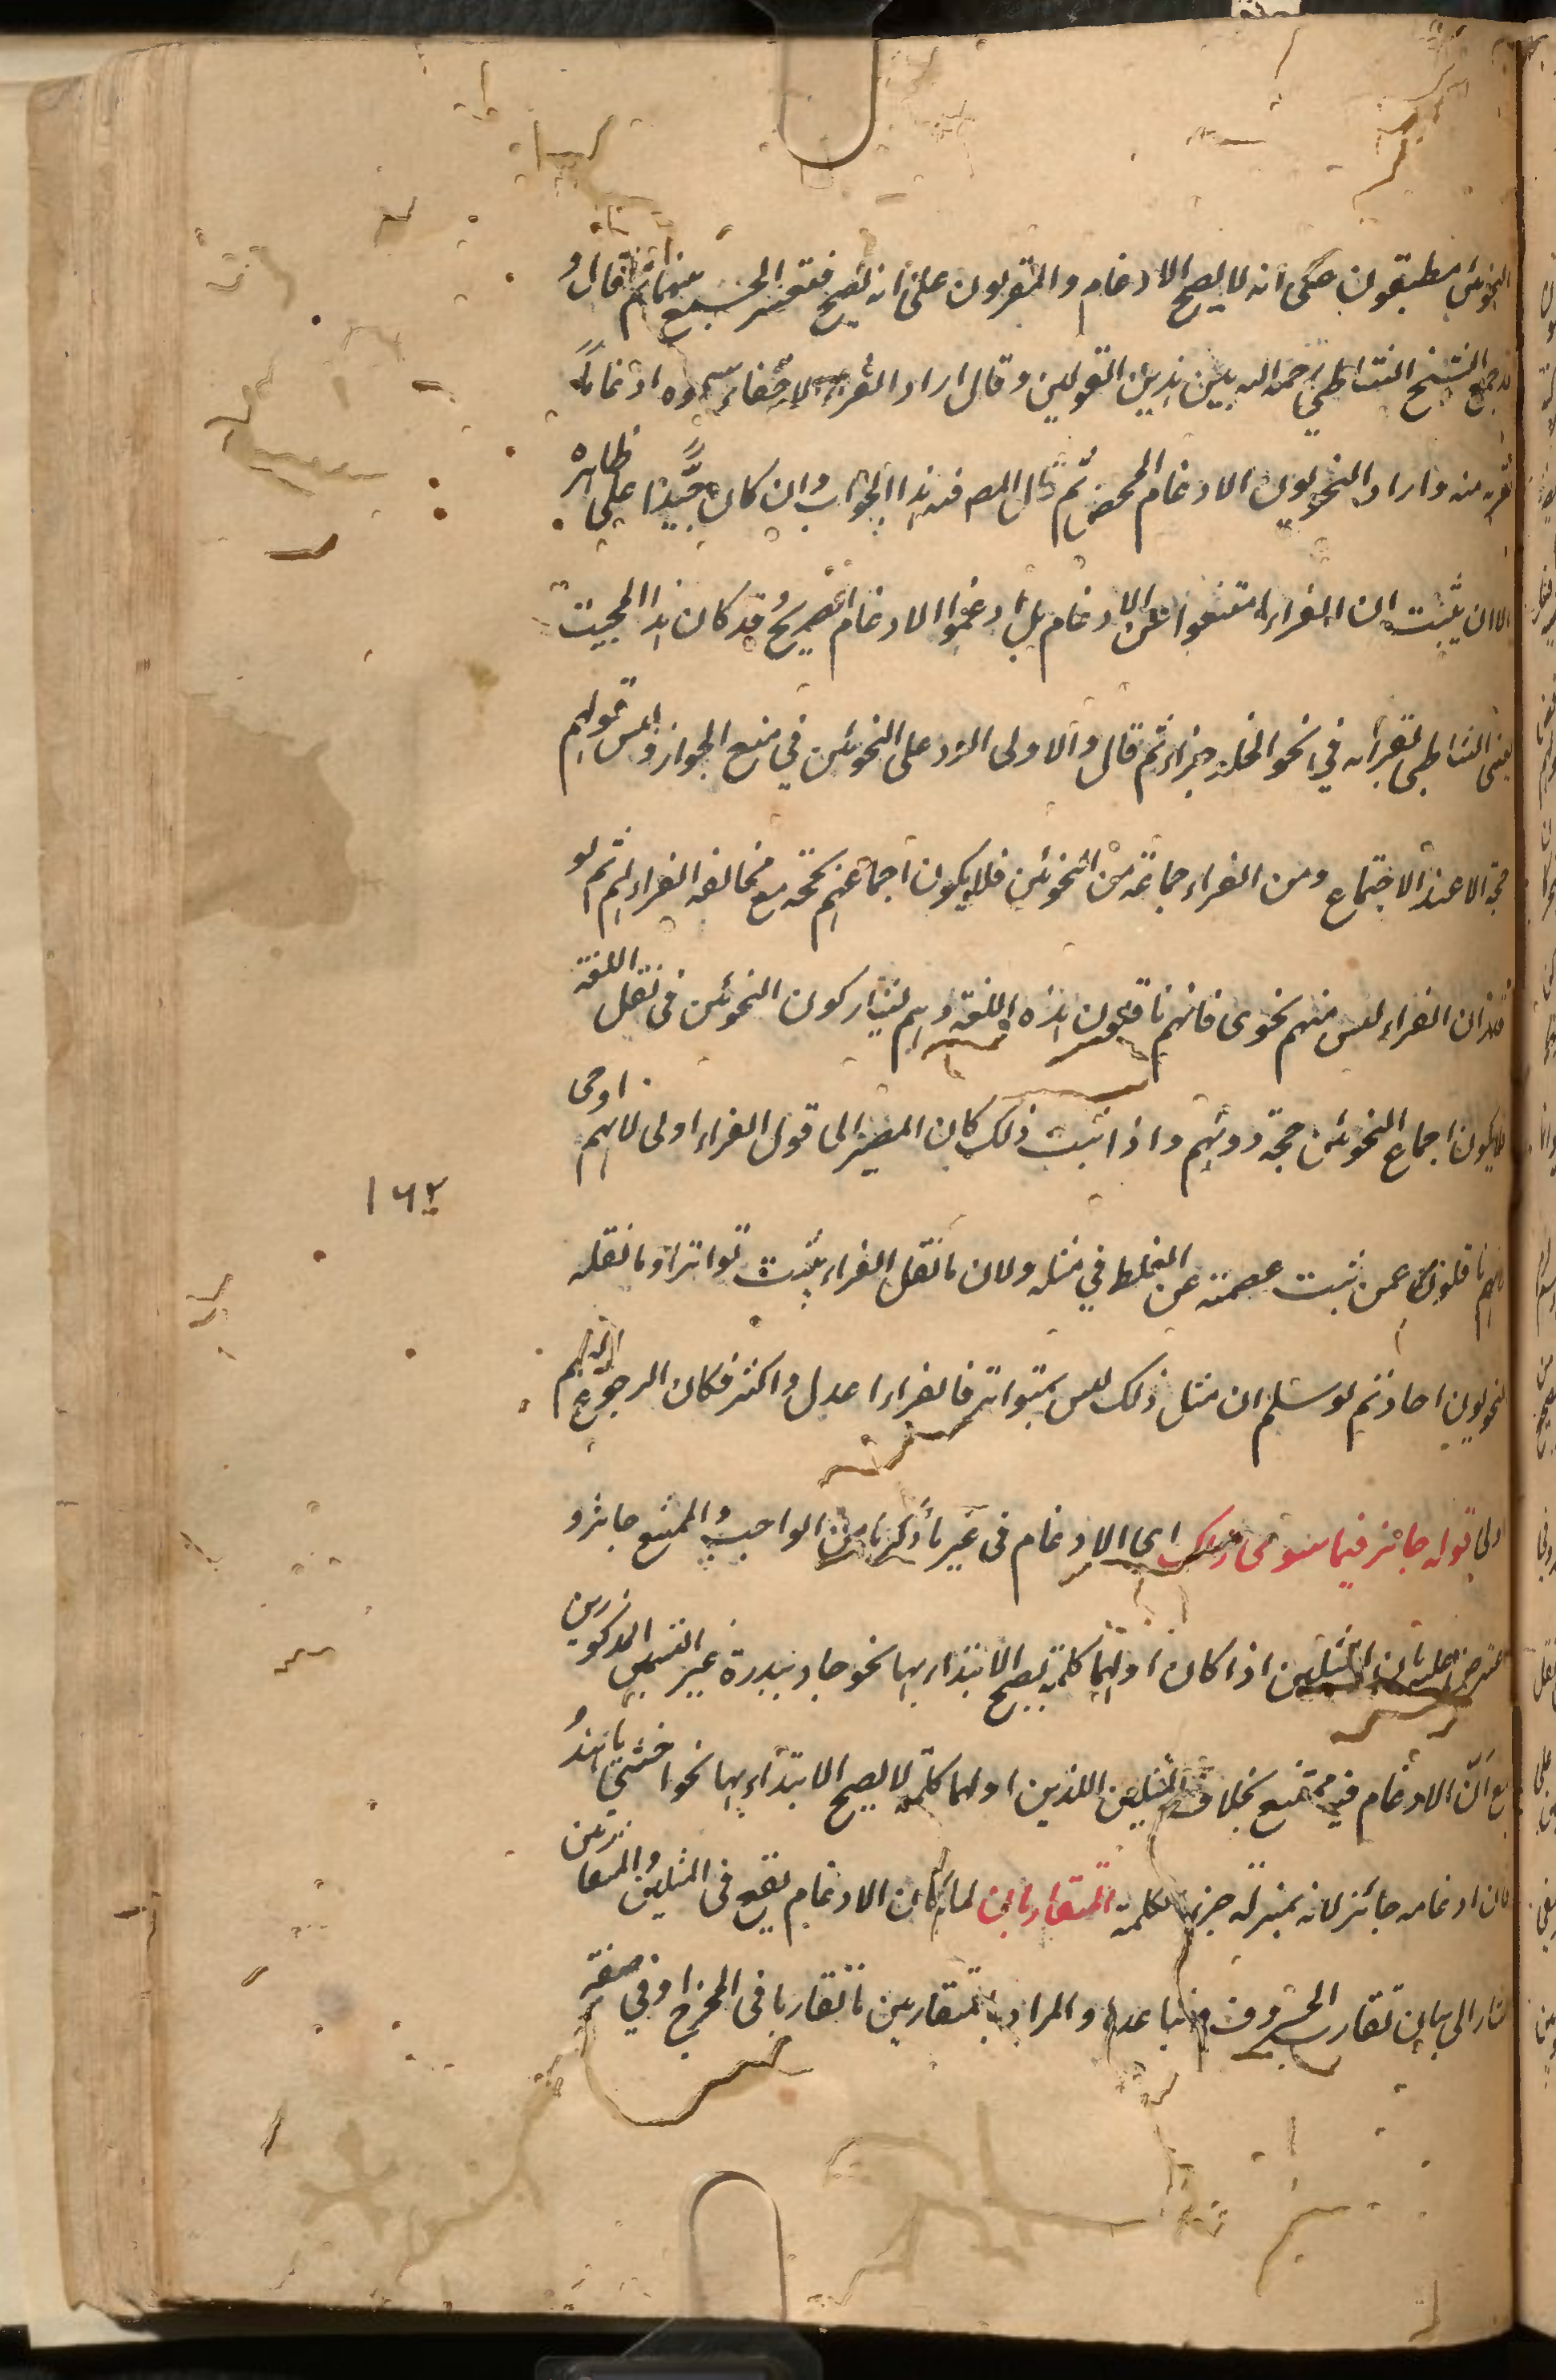 النحويين مطبقون على انه لا يصح الادغام والمقربون على انه يصح فيعسر الجمع بينهما ثم قال و
قد جمع الشيخ الشاطبي رحمه الله بين هذين القولين وقال اراد القراء الاخفاء وسموه ادغاما لما
لقربه منه واراد النحويون الادغام المحض ثم قال المص فهذا الجواب وان كان جيدا على ظاهره
الا ان يثبت ان القراء امتنعوا عن الادغام بل ادغموا الادغام الصريح وقد كان هذا المجيب
يعني الشاطبي يقرأ به في نحو الخلد جزاء ثم قال والاولى الرد على النحويين في منع الجواز وليس قولهم
حجة الا عند الاجتماع ومن القراء جماعة من النحويين فلا يكون اجماعهم حجة مع مخالفة القراء لهم ثم لو
قدر ان القراء ليس منهم نحوى فانهم ناقلون هذه اللغة وهم يشاركون النحويين فى نقل اللغة
فلا يكون اجماع النحويين حجة دونهم واذا ثبت ذلك كان المصير الى قول القراء اولى لانهم
١٦٢
لانهم ناقلون عمن ثبت عصمته عن الغلط في مثله ولان ما نقل القراء يثبت تواترا وما نقله
النحويون احاد ثم لو سلم ان مثل ذلك ليس بمتواتر فالقراء اعدل واكثر فكان الرجوع اليهم
اولى قوله جائز فيما سوى ذلك اى الادغام فى غير ما ذكرنا من الواجب والممتنع جائز و
اعترض عليه بان المثلين اذا كان اولهما كلمة يصح الابتداء بها نحو جاد ببدرة غير القسمين المذكورين
مع ان الادغام فيه ممتنع بخلاف المثلين اللذين اولهما كلمة لا يصح الابتداء بها نحو اخشى يا هند
فان ادغامه جائز لانه بمنزلة جزء الكلمة المتقاربان لما كان الادغام يقع فى المثلين والمتقاربين
اشار الى بيان تقارب الحروف وتباعدها والمراد بالمتقاربين ما تقاربا فى المخرج او في صفة